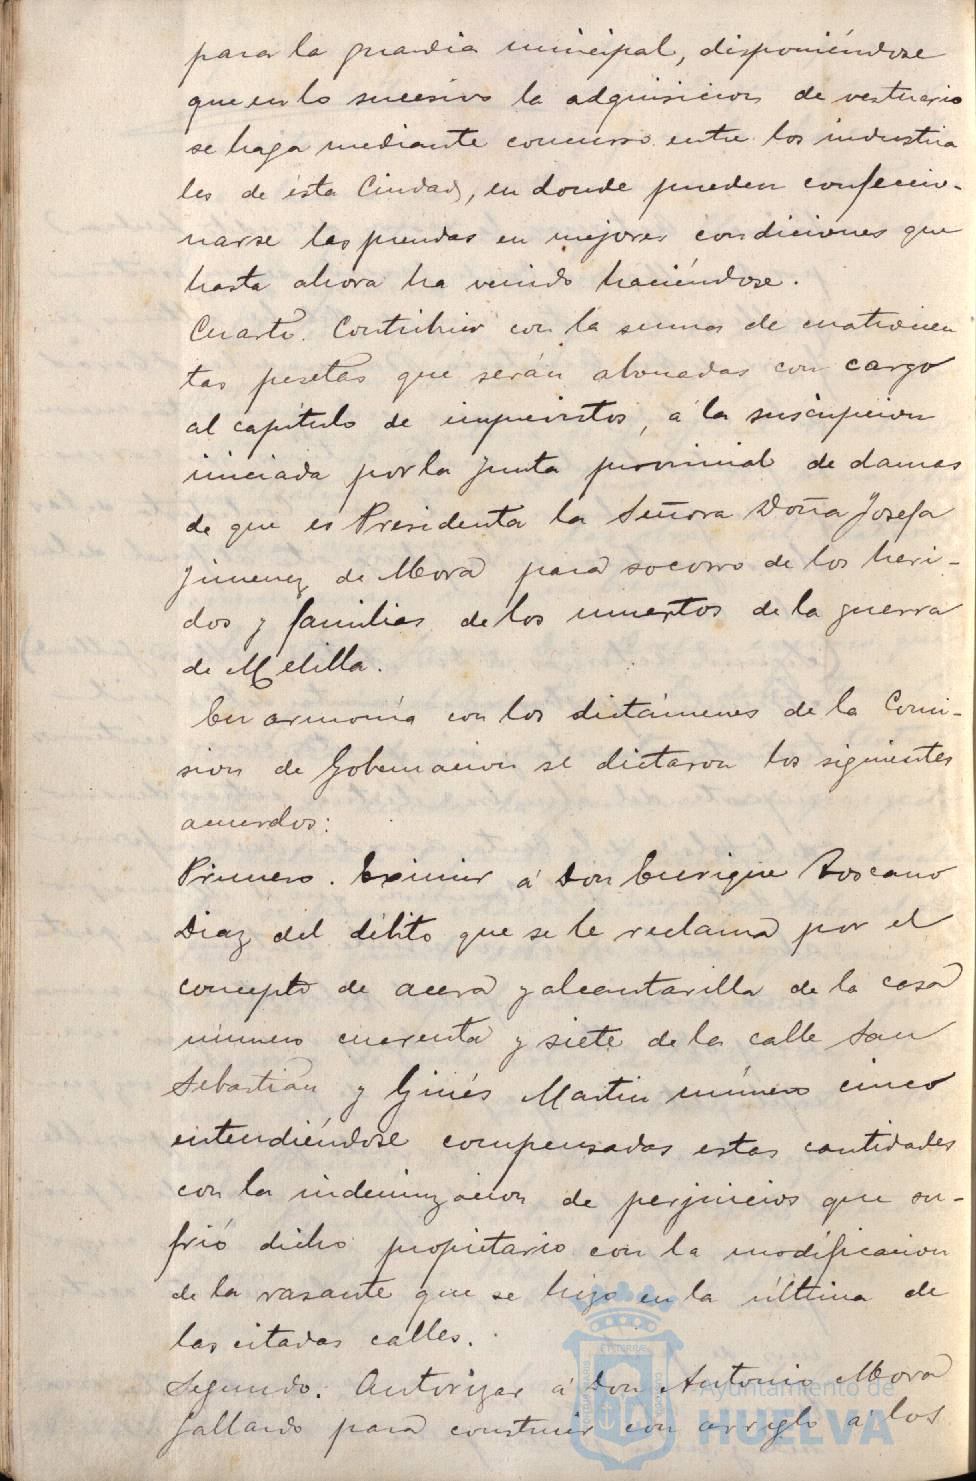 para la guardia municipal, disponiéndose
que en lo sucesivo la adquisicion de vestuario
se haga mediante concurso entre los industria
les de ésta Ciudad, en donde pueden confeccio-
narse las prendas en mejores condiciones que
hasta ahora ha venido haciéndose.
Cuarto. Contribuir con la suma de cuatrocien
tas pesetas que serán abonadas con cargo
al capítulo de imprevistos, á la suscripcion
iniciada por la Junta provincial de damas
de que es Presidenta la Señora Doña Josefa
Jimenez de Mora para socorro de los heri-
dos y familias de los muertos de la guerra
de Melilla.
En armonía con los dictámenes de la Comi-
sion de Gobernacion se dictaron los siguientes
acuerdos:
Primero. Eximir á Don Enrique Toscano
Diaz del débito que se le reclama por el
concepto de acera y alcantarilla de la casa
número cuarenta y siete de la calle San
Sebastián y Ginés Martin número cinco
entendiéndose compensadas estas cantidades
con la indemnizacion de perjuicios que su-
frió dicho propietario con la modificacion
de la rasante que se hizo en la última de
las citadas calles.
Segundo. Autorizar á Don Antonio Mora
Gallardo para construir con arreglo á los
Ayuntamiento de
HUELVA